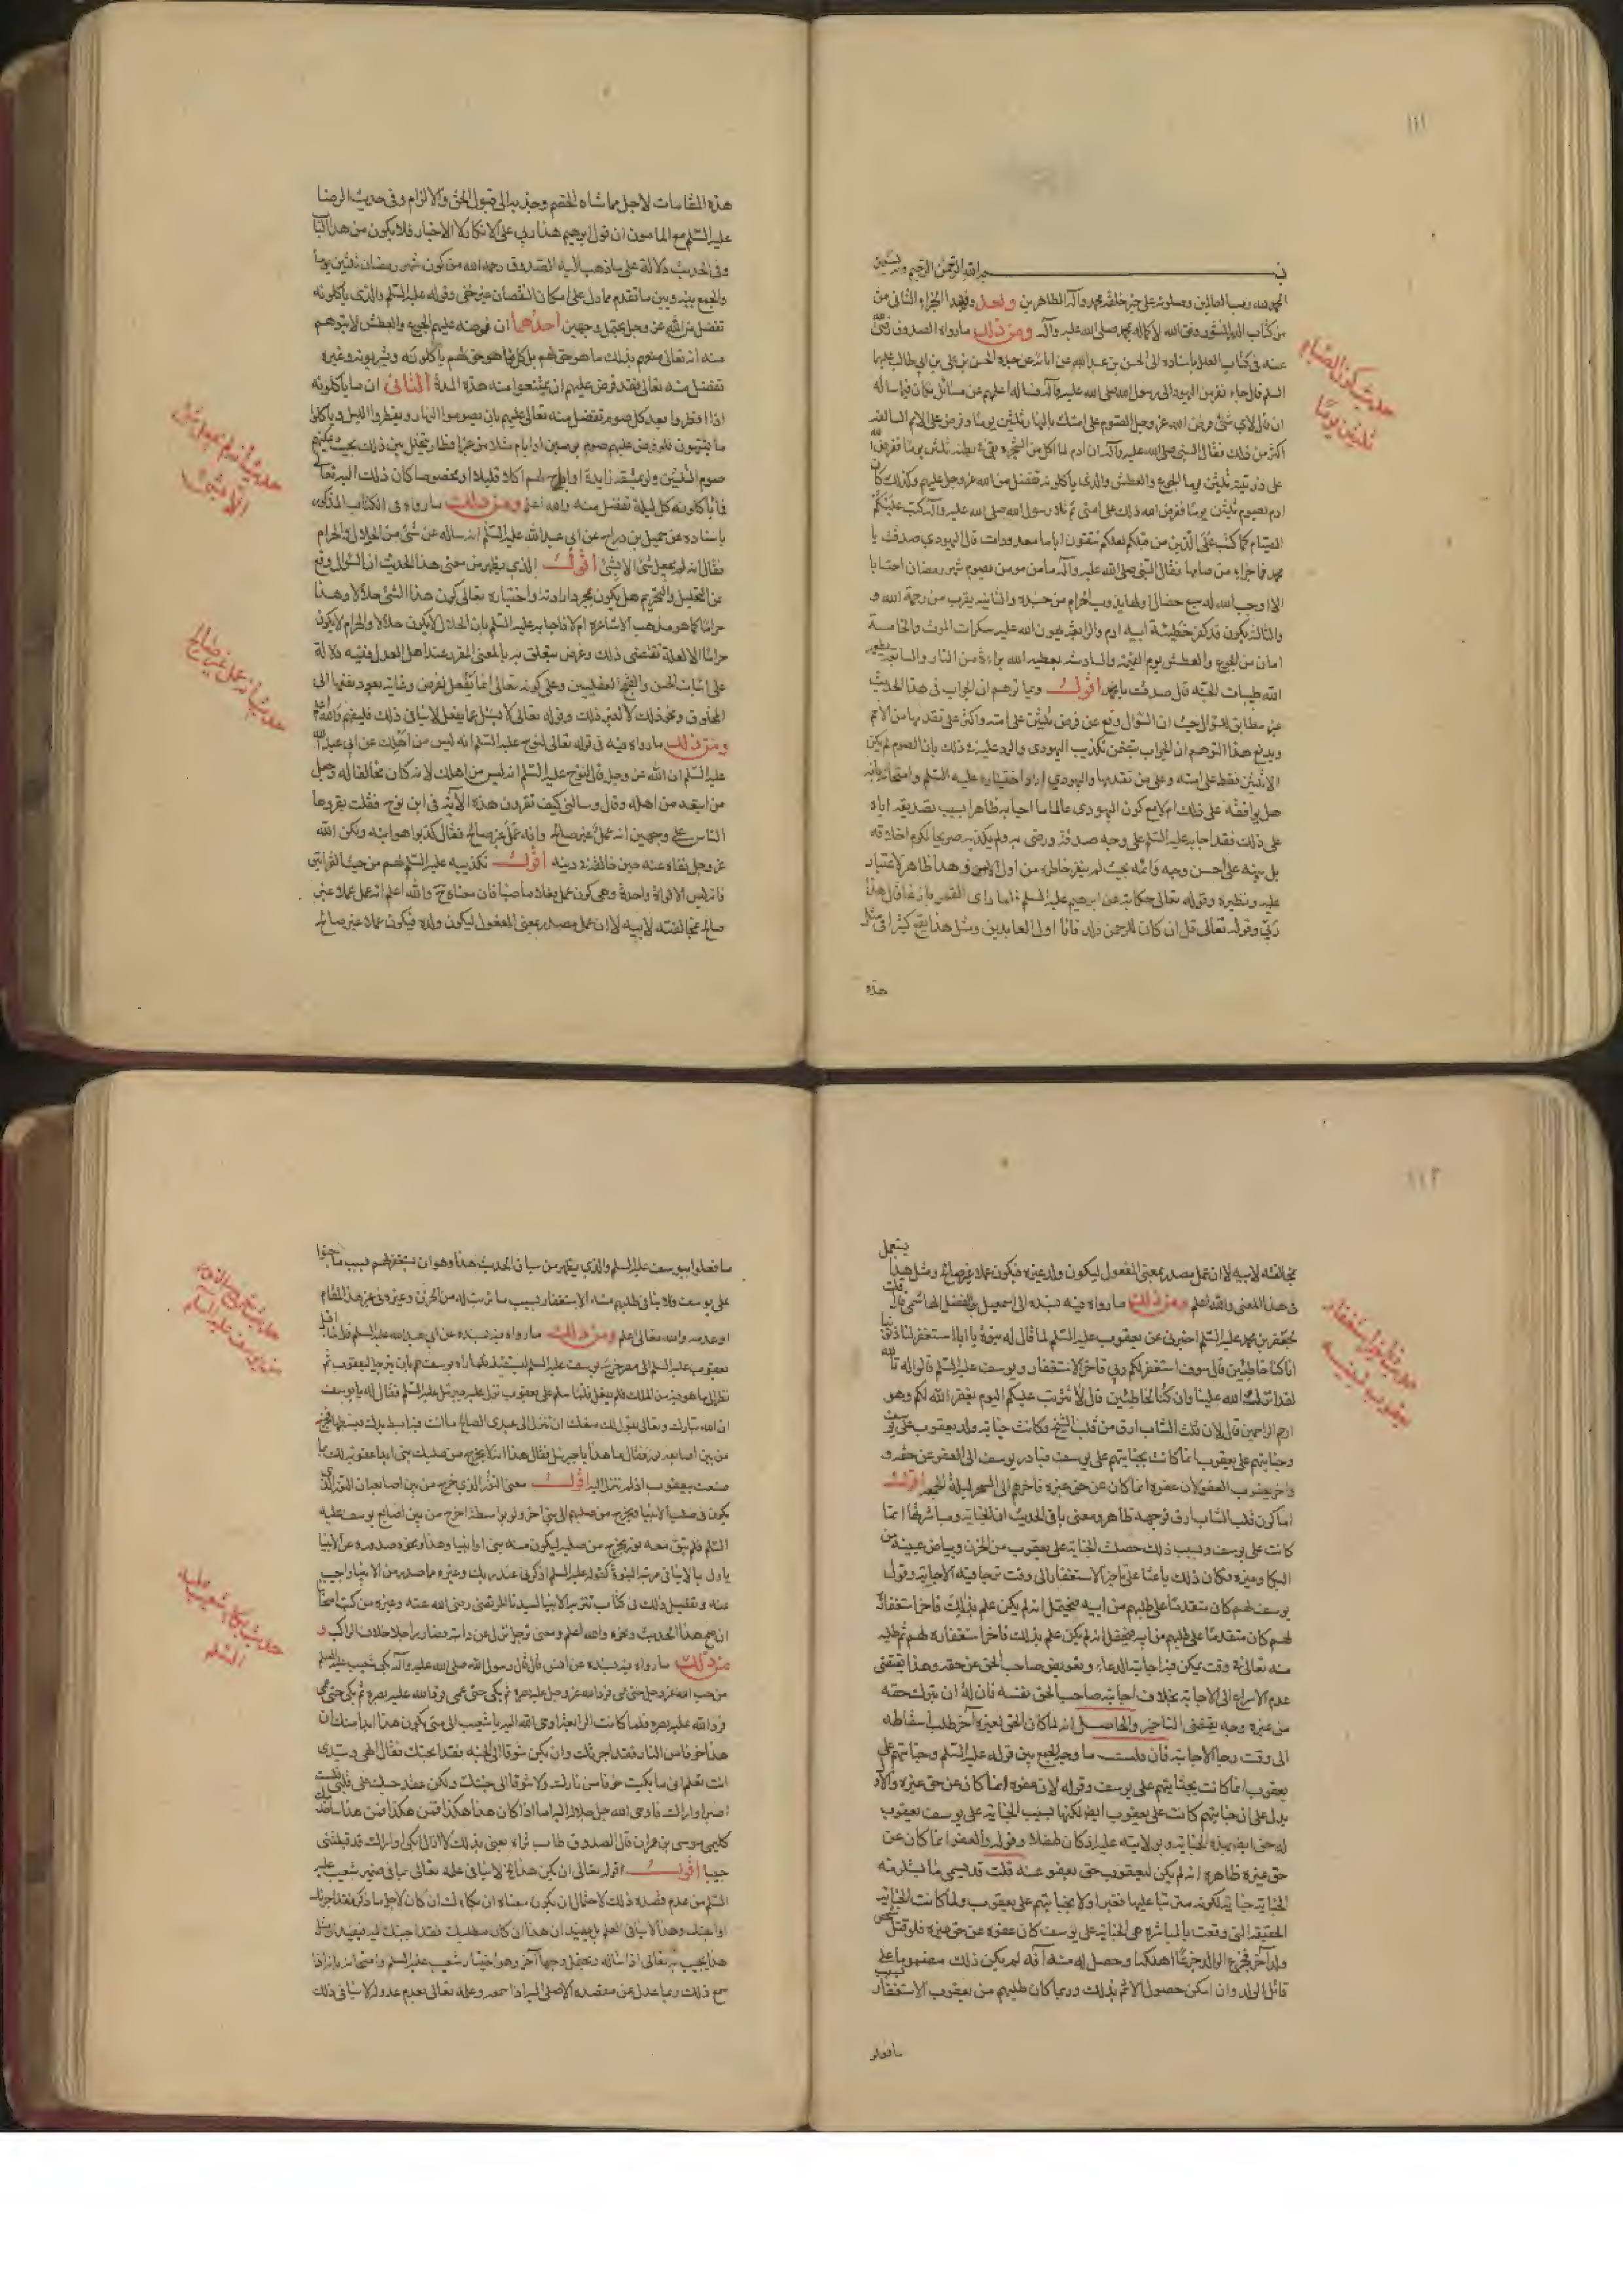 ١١١
بسم الله الرحمن الرحيم وبه نستعين
الحمد لله رب العالمين وصلوته على خير خلقه محمد وآله الطاهرين وبعد فهذا الجزء الثاني من
من كتاب الدر المنثور وفق الله لاكماله بمحمد صلى الله عليه وآله ومن ذلك ما رواه الصدوق رضي الله
عنه في كتاب العلل باسناده الى الحسن بن عبد الله عن ابائه عن جده الحسن بن علي بن ابي طالب عليهما
السلم قال جاء نفر من اليهود الى رسول الله صلى الله عليه وآله فساله اعلمهم عن مسائل فكان فيما ساله
ان قال لاي شئ فرض الله عز وجل الصوم على امتك بالنهار ثلثين يوما وفرض على الامم السالفة
اكثر من ذلك فقال النبي صلى الله عليه وآله ان ادم لما اكل من الشجرة بقي في بطنه ثلثين يوما ففرض الله
على ذريته ثلثين يوما الجوع والعطش والذي ياكلونه تفضل من الله عز وجل عليهم وكذلك كان
ادم يصوم ثلثين يوما ففرض الله ذلك على امتي ثم تلا رسول الله صلى الله عليه وآله كتب عليكم
الصيام كما كتب على الذين من قبلكم لعلكم تتقون اياما معدودات قال اليهودي صدقت يا
محمد فما جزاء من صامها فقال النبي صلى الله عليه وآله ما من مومن يصوم شهر رمضان احتسابا
الا اوجب الله له سبع خصال اولها يذوب الحرام من جسده والثانيه يقرب من رحمة الله و
والثالثه يكون قد كفر خطيئة ابيه ادم والرابعة يهون الله عليه سكرات الموت والخامسة
امان من الجوع والعطش يوم القيمة والسادسة يعطيه الله براءة من النار والسابعة يطعمه
الله طيبات الجنه قال صدقت يا محمد اقول وربما توهم ان الجواب في هذا الحديث
غير مطابق للسؤال حيث ان السؤال وقع عن فرض ثلثين على امته واكثر على تقدمها من الامم
ويدفع هذا التوهم ان الجواب يتضمن تكذيب اليهودي والرد عليه في ذلك بان الصوم لم يكن
الا ثلثين فقط على امته وعلى من تقدمها واليهودي اراد اختباره عليه السلم وامتحانه بانه
هل يوافقه على ذلك ام لا مع كون اليهودي عالما بما اجابه ظاهرا بسبب تصديقه اياه
على ذلك فقد اجابه عليه السلم على وجه صدقه ورضى به ولم يكذبه صريحا لكرم اخلاقه
بل نبه على احسن وجه واتمه بحيث لم ينفر خاطره من اول الامر وهذا ظاهر لا غبار
عليه ونظيره وقوله تعالى حكاية عن ابرهيم عليه السلم فلما راى القمر بازغا قال هذا
ربي وقوله تعالى قل ان كان للرحمن ولد فانا اول العابدين ومثل هذا يقع كثيرا في مثل
هذه
حديث كون الصيام
ثلثين يوما
هذه المقامات لاجل مماشاة الخصم وجذبه الى قبول الحق والالزام وفي حديث الرضا
عليه السلم مع المامون ان قول ابرهيم هذا ربي على الانكار لا الاخبار فلا يكون من هذا الباب
وفي الحديث دلالة على ما ذهب اليه الصدوق رحمه الله من كون شهر رمضان ثلثين يوما
والجمع بينه وبين ما تقدم مما دل على امكان النقصان غير خفي وقوله عليه السلم والذي ياكلونه
تفضل من الله عز وجل يحتمل وجهين احدهما ان فرضه عليهم الجوع والعطش لا يتوهم
منه انه تعالى منعهم بذلك مما هو حق لهم بل كل ما هو حق لهم ياكلونه ويشربونه وغيره
تفضل منه تعالى فقد فرض عليهم ان يمتنعوا منه هذه المدة الثاني ان ما ياكلونه
اذا افطروا بعد كل صوم تفضل منه تعالى عليهم بان يصوموا النهار ويفطروا الليل وياكلوا
ما يشتهون فلو فرض عليهم صوم يومين او ايام مثلا من غير افطار يتخلل بين ذلك بحيث يمكنهم
صوم الثلثين ولو بمشقة زايدة او اباح لهم اكلا قليلا او مخصوصا كان ذلك اليه تعالى
فما ياكلونه كل ليلة تفضل منه والله اعلم ومن ذلك ما رواه في الكتاب المذكور
باسناده عن جميل بن دراج عن ابي عبد الله عليه السلم انه ساله عن شئ من الحلال والحرام
فقال انه لم يجعل شئ الا لشئ اقول الذي يظهر من معنى هذا الحديث ان السؤال وقع
عن التحليل والتحريم هل يكون بمجرد ارادته واختياره تعالى كون هذا الشئ حلالا وهذا
حراما كما هو مذهب الاشاعرة ام لا فاجابه عليه السلم بان الحلال لا يكون حلالا والحرام لا يكون
حراما الا لعلة تقتضي ذلك وغرض يتعلق به بالمعنى المقرر عند اهل العدل ففيه دلالة
على اثبات الحسن والقبح العقليين وعلى كونه تعالى انما يفعل لغرض وغاية يعود نفعها الى
المخلوق ونحو ذلك لا لغير ذلك وقوله تعالى لا يسئل عما يفعل لا ينافي ذلك فليفهم والله اعلم
ومن ذلك ما رواه فيه في قوله تعالى لنوح عليه السلم انه ليس من اهلك عن ابي عبد الله
عليه السلم ان الله عز وجل قال لنوح عليه السلم انه ليس من اهلك لانه كان مخالفا له وجعل
من اتبعه من اهله وقال وسالني كيف تقرؤن هذه الآية في ابن نوح فقلت يقروها
الناس على وجهين انه عمل غير صالح وانه عمل غير صالح فقال كذبوا هو ابنه ولكن الله
عز وجل نفاه عنه حين خالفه في دينه اقول تكذيبه عليه السلم لهم من حيث القراءتين
فانه ليس الا قراءة واحدة وهي كون عمل فعلا ماضيا فان معناه والله اعلم انه عمل عملا غير
صالح بمخالفته لابيه لا ان عمل مصدر بمعنى المفعول ليكون ولده فيكون عملا غير صالح
حديث انه لم يجعل شئ
الا لشئ
حديث انه عمل غير صالح
١١٢
بمخالفته لابيه لا ان عمل مصدر بمعنى المفعول ليكون ولد غيره فيكون عملا غير صالح ومثل هذا يستعمل
في هذا المعنى والله اعلم ومن ذلك ما رواه فيه بسنده الى اسمعيل بن الفضل الهاشمي قال قلت
لجعفر بن محمد عليه السلم اخبرني عن يعقوب عليه السلم لما قال له بنوه يا ابانا استغفر لنا ذنوبنا
انا كنا خاطئين قال سوف استغفر لكم ربي فاخر الاستغفار ويوسف عليه السلم قالوا له تالله
لقد اثرك الله علينا وان كنا لخاطئين قال لا تثريب عليكم اليوم يغفر الله لكم وهو
ارحم الراحمين قال لان قلب الشاب ارق من قلب الشيخ وكانت جناية ولد يعقوب على يوسف
وجنايتهم على يعقوب انما كانت بجنايتهم على يوسف فبادر يوسف الى العفو عن حقه و
واخر يعقوب العفو لان عفوه انما كان عن حق غيره فاخرهم الى السحر ليلة الجمعة اقول
اما كون قلب الشاب ارق فوجهه ظاهر ومعنى باقي الحديث ان الجناية ومباشرتها انما
كانت على يوسف وبسبب ذلك حصلت الجناية على يعقوب من الحزن وبياض عينيه من
البكا وغيره فكان ذلك باعثا على تاخير الاستغفار الى وقت ترجا فيه الاجابة وقول
يوسف لهم كان متقدما على طلبهم من ابيه فيحتمل انه لم يكن علم بذلك فاخر استغفاره
لهم كان متقدما على طلبهم من ابيه فيحتمل انه لم يكن علم بذلك فاخر استغفاره لهم ثم طلبه
منه تعالى في وقت يمكن فيه اجابة الدعاء وتعويض صاحب الحق عن حقه وهذا يقتضي
عدم الاسراع الى الاجابة بخلاف اجابة صاحب الحق نفسه فان له ان يترك حقه
من غيره وجه يقتضي التاخير والحاصل انه لما كان الحق لغيره اخر طلب اسقاطه
الى وقت رجا الاجابة فان قلت ما وجه الجمع بين قوله عليه السلم وجنايتهم على
يعقوب انما كانت بجنايتهم على يوسف وقوله لان عفوه انما كان عن حق غيره والاول
يدل على ان جنايتهم كانت على يعقوب ايضا لكنها بسبب الجناية على يوسف فيعقوب
له حق ايضا بهذه الجناية وبولايته عليه اذ كان طفلا وقوله والعفو انما كان عن
حق غيره ظاهره انه لم يكن ليعقوب حق يعفو عنه قلت قد يسمى ما تستلزمه
الجناية جناية لكونه مترتبا عليها فغيرا ولا بجنايتهم على يعقوب ولما كانت الجناية
الحقيقة التي وقعت بالمباشرة هي الجناية على يوسف كان عفوه عن حق غيره فلو قتل شخص
ولد آخر فجزع الوالد جزعا اهلكه او حصل له منه آفة لم يكن ذلك مضمونا على
قاتل الولد وان امكن حصول الاثم بذلك وربما كان طلبهم من يعقوب الاستغفار بسبب
ما فعلوا
حديث تاخير استغفار
يعقوب لبنيه
ما فعلوا بيوسف عليه السلم والذي يظهر من سياق الحديث هذا وهو ان يستغفر لهم بسبب ما جنوا
على يوسف فلا ينافي طلبهم منه الاستغفار بسبب ما ترتب له من الحزن وغيره في غير هذا المقام
او عدمه والله تعالى اعلم ومن ذلك ما رواه فيه بسنده عن ابي عبد الله عليه السلم قال لما اقبل
يعقوب عليه السلم الى مصر خرج يوسف عليه السلم ليستقبله فلما راه يوسف هم بان يترجل ليعقوب ثم
نظر الى ما هو فيه من الملك فلم يفعل فلما سلم على يعقوب نزل عليه جبرئيل عليه السلم فقال له يا يوسف
ان الله تبارك وتعالى يقول لك ما منعك ان تنزل الى عبدي الصالح ما انت فيه ابسط يدك فبسطها فخرج
من بين اصابعه نور فقال ما هذا يا جبرئيل فقال هذا انه لا يخرج من صلبك نبي ابدا عقوبة لك بما
صنعت بيعقوب اذ لم تنزل اليه اقول معنى النور الذي خرج من بين اصابعه ان النور الذي
يكون في صلب الانبيا ويخرج من صلبهم الى نبي اخر ولو بواسطة اخرج من بين اصابع يوسف عليه
السلم فلم يبق معه نور يخرج من صلبه ليكون منه نبي او انبيا وهذا ونحوه صدوره عن الانبيا
ياول بما لا ينافي مرتبة النبوة كقوله عليه السلم اذكرني عند ربك وغيره مما صدر من الانبيا واجيب
عنه وتفصيل ذلك في كتاب تنزيه الانبيا لسيدنا المرتضى رضي الله عنه وغيره من كتب اصحابنا
ان صح هذا الحديث ونحوه والله اعلم ومعنى ترجل نزل عن دابته فصار راجلا خلاف الراكب و
من ذلك ما رواه فيه بسنده عن انس قال قال رسول الله صلى الله عليه وآله بكى شعيب عليه السلم
من حب الله عز وجل حتى عمي فرد الله عز وجل عليه بصره ثم بكى حتى عمي فرد الله عليه بصره ثم بكى حتى عمي
فرد الله عليه بصره فلما كانت الرابعة اوحى الله اليه يا شعيب الى متى يكون هذا ابدا منك ان
يكن هذا خوفا من النار فقد اجرتك وان يكن شوقا الى الجنة فقد ابحتك فقال الهي وسيدي
انت تعلم اني ما بكيت خوفا من نارك ولا شوقا الى جنتك ولكن عقد حبك على قلبي فلست
اصبر او اراك فاوحى الله جل جلاله اليه اما اذا كان هذا هكذا فمن اجل هذا ساخدمك
كليمي موسى بن عمران قال الصدوق طاب ثراه يعني بذلك لا ازال ابكي او اراك قد قبلتني
حبيبا اقول قوله تعالى ان يكن هذا لا ينافي علمه تعالى بما في ضمير شعيب عليه
السلم من عدم قصده ذلك لاحتمال ان يكون معناه ان بكاءك ان كان لاجل ما ذكر فقد اجرتك
حديث ترجل يوسف
ليعقوب عليه السلم
حديث بكاء شعيب عليه
السلم